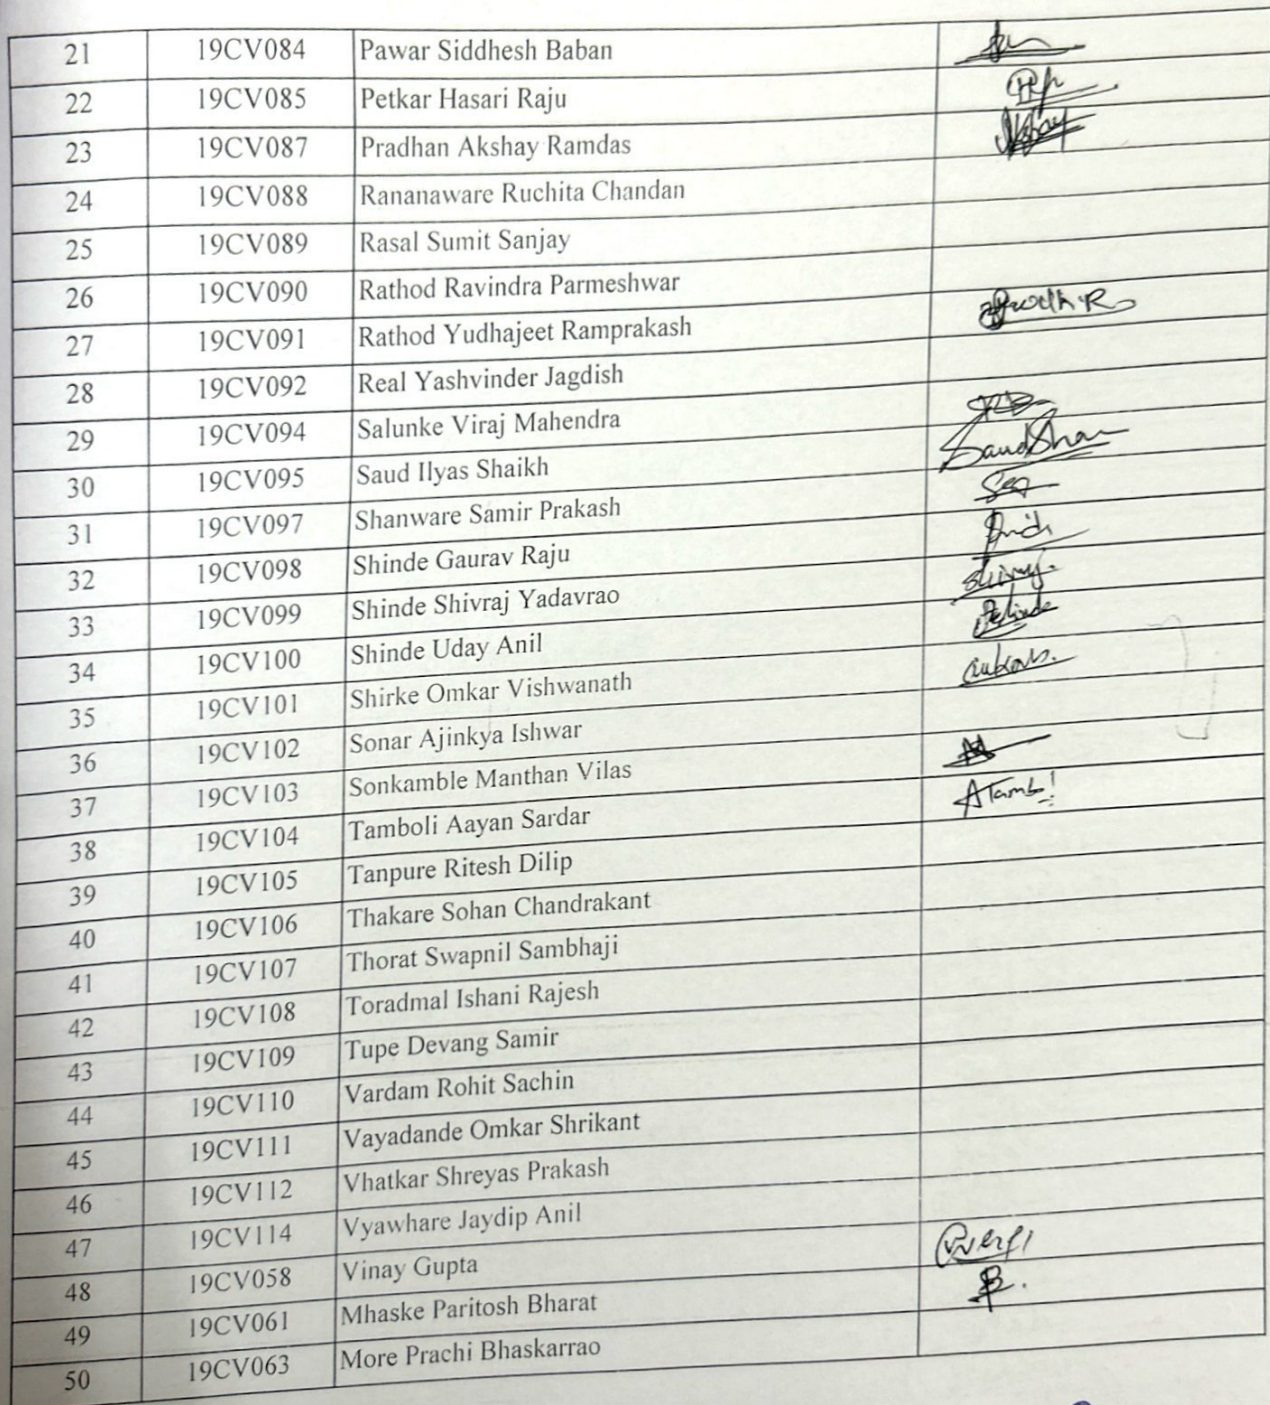 21 19CV084 Pawar Siddhesh Baban
22 19CV085 Petkar Hasari Raju
23 19CV087 Pradhan Akshay Ramdas
24 19CV088 Rananaware Ruchita Chandan
25 19CV089 Rasal Sumit Sanjay
26 19CV090 Rathod Ravindra Parmeshwar
27 19CV091 Rathod Yudhajeet Ramprakash
28 19CV092 Real Yashvinder Jagdish
29 19CV094 Salunke Viraj Mahendra
30 19CV095 Saud Ilyas Shaikh
31 19CV097 Shanware Samir Prakash
32 19CV098 Shinde Gaurav Raju
33 19CV099 Shinde Shivraj Yadavrao
34 19CV100 Shinde Uday Anil
35 19CV101 Shirke Omkar Vishwanath
36 19CV102 Sonar Ajinkya Ishwar
37 19CV103 Sonkamble Manthan Vilas
38 19CV104 Tamboli Aayan Sardar
39 19CV105 Tanpure Ritesh Dilip
40 19CV106 Thakare Sohan Chandrakant
41 19CV107 Thorat Swapnil Sambhaji
42 19CV108 Toradmal Ishani Rajesh
43 19CV109 Tupe Devang Samir
44 19CV110 Vardam Rohit Sachin
45 19CV111 Vayadande Omkar Shrikant
46 19CV112 Vhatkar Shreyas Prakash
47 19CV114 Vyawhare Jaydip Anil
48 19CV058 Vinay Gupta
49 19CV061 Mhaske Paritosh Bharat
50 19CV063 More Prachi Bhaskarrao